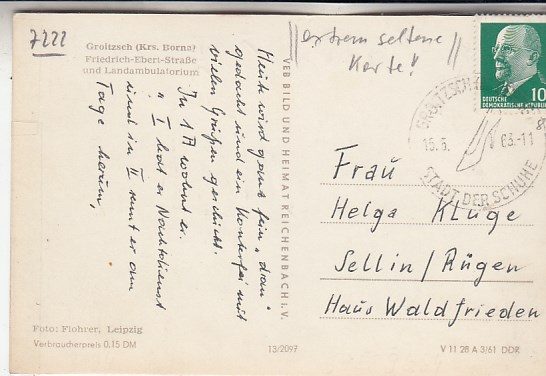 7222
Groitzsch (Krs. Borna)
Friedrich-Ebert-Straße
und Landambulatorium
Heute wird ganz fein „dran"
gedacht und ein Konterfei mit
vielen Grüßen geschickt.
In 17 wohnt er.
" I hat er Nachtdienst
und in II rennt er am
Tage herum,
Foto: Flohrer, Leipzig
Verbraucherpreis 0.15 DM
VEB BILD UND HEIMAT REICHENBACH I. V.
13/2097
extrem seltene
Karte!
DEUTSCHE
DEMOKRATISCHE REPUBLIK
10
GROITZSCH
15.5. 63.-11
STADT DER SCHUHE
Frau
Helga Kluge
Sellin/Rügen
Haus Waldfrieden
V 11 28 A 3/61 DDR